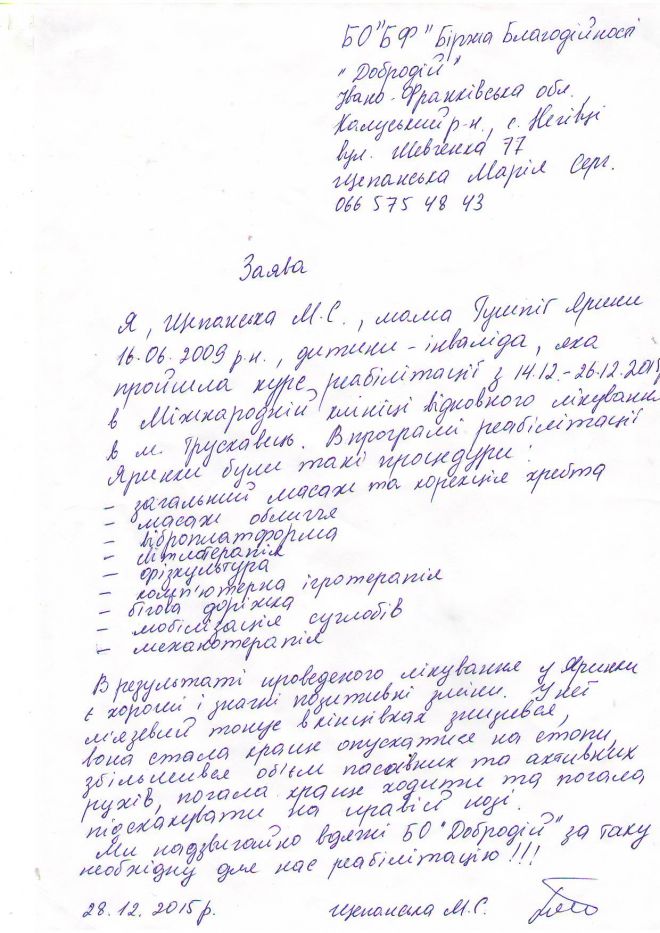 БО "БФ "Біржа Благодійності
"Добродій"
Івано-Франківська обл.,
Калуський р-н., с. Негівці
вул. Шевченка 77
Щепанська Марія Серг.
066 575 48 43
Заява
Я, Щепанська М.С., мама Яринки
16.06.2009 р.н., дитини-інваліда, яка
пройшла курс реабілітації з 14.12.-26.12.2015р
в Міжнародній клініці відновного лікування
в м. Трускавець. В програмі реабілітації
Яринки були такі процедури:
- загальний масаж та корекція хребта
- масаж обличчя
- віброплатформа
- світлотерапія
- фізкультура
- комп'ютерна ігротерапія
- бігова доріжка
- мобілізація суглобів
- механотерапія
В результаті проведеного лікування у Яринки
є хороші і значні позитивні зміни. У неї
м'язевий тонус в кінцівках знизився,
вона стала краще опускатися на стопи,
збільшився об'єм пасивних та активних
рухів, почала краще ходити та почала
підскакувати на правій нозі.
Ми надзвичайно вдячні БО "Добродій" за таку
необхідну для нас реабілітацію!!!
28.12.2015р. Щепанська М.С.